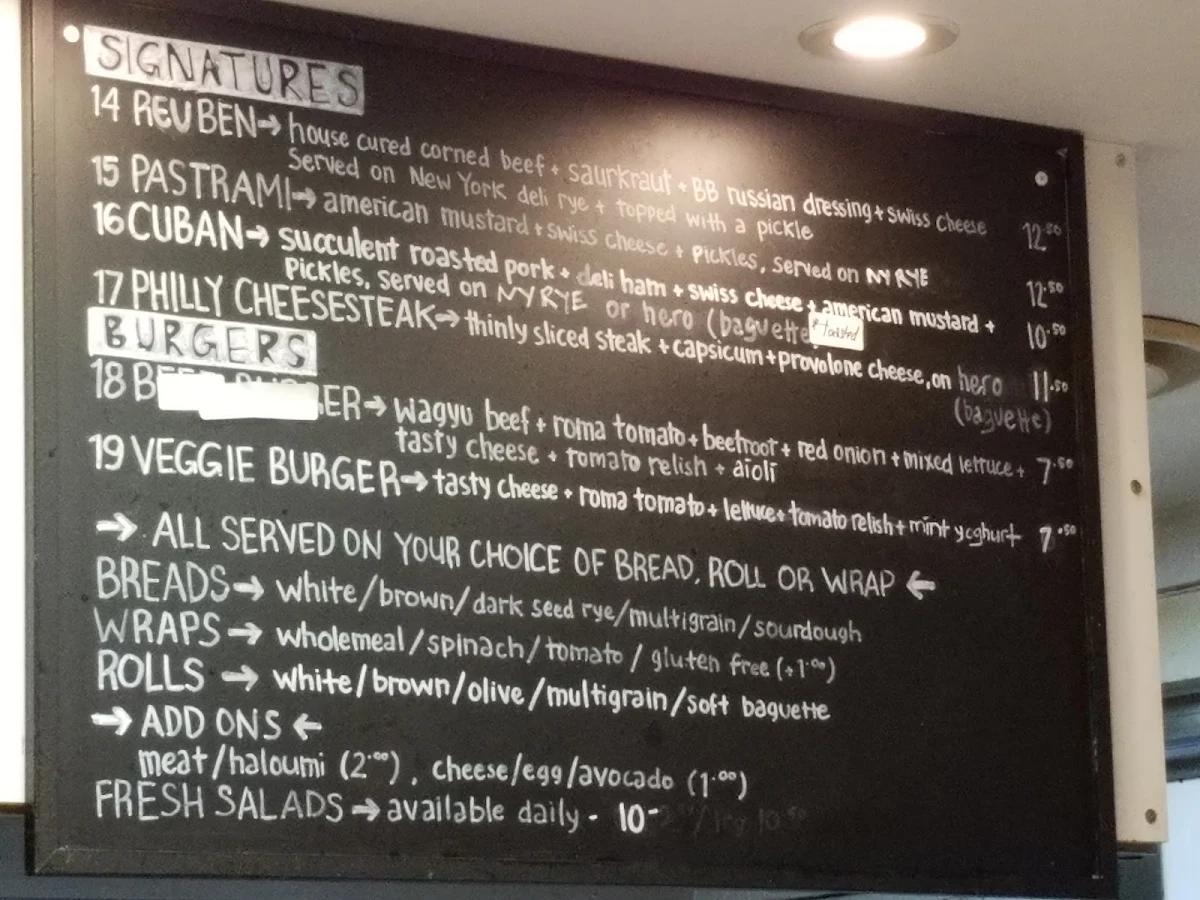 SIGNATURES
14 REUBEN→ house cured corned beef + saurkraut + BB russian dressing + swiss cheese 12.50
Served on New York deli rye + topped with a pickle
15 PASTRAMI→ american mustard + swiss cheese + Pickles, served on NY RYE 12.50
16 CUBAN→ succulent roasted pork + deli ham + swiss cheese + american mustard + 10.50
Pickles, served on NY RYE or hero (baguette
17 PHILLY CHEESESTEAK→ thinly sliced steak + capsicum + provolone cheese, on hero 11.50
(baguette)
BURGERS
18 B ER→ wagyu beef + roma tomato + beetroot + red onion + mixed lettuce + 7.50
tasty cheese + tomato relish + aioli
19 VEGGIE BURGER→ tasty cheese + roma tomato + lettuce + tomato relish + mint yoghurt 7.50
→ ALL SERVED ON YOUR CHOICE OF BREAD, ROLL OR WRAP ←
BREADS→ white/brown/dark seed rye/multigrain/sourdough
WRAPS→ wholemeal/spinach/tomato/gluten free (+1.00)
ROLLS → white/brown/olive/multigrain/soft baguette
→ ADD ONS ←
meat/haloumi (2.00), cheese/egg/avocado (1.00)
FRESH SALADS→ available daily - 10-